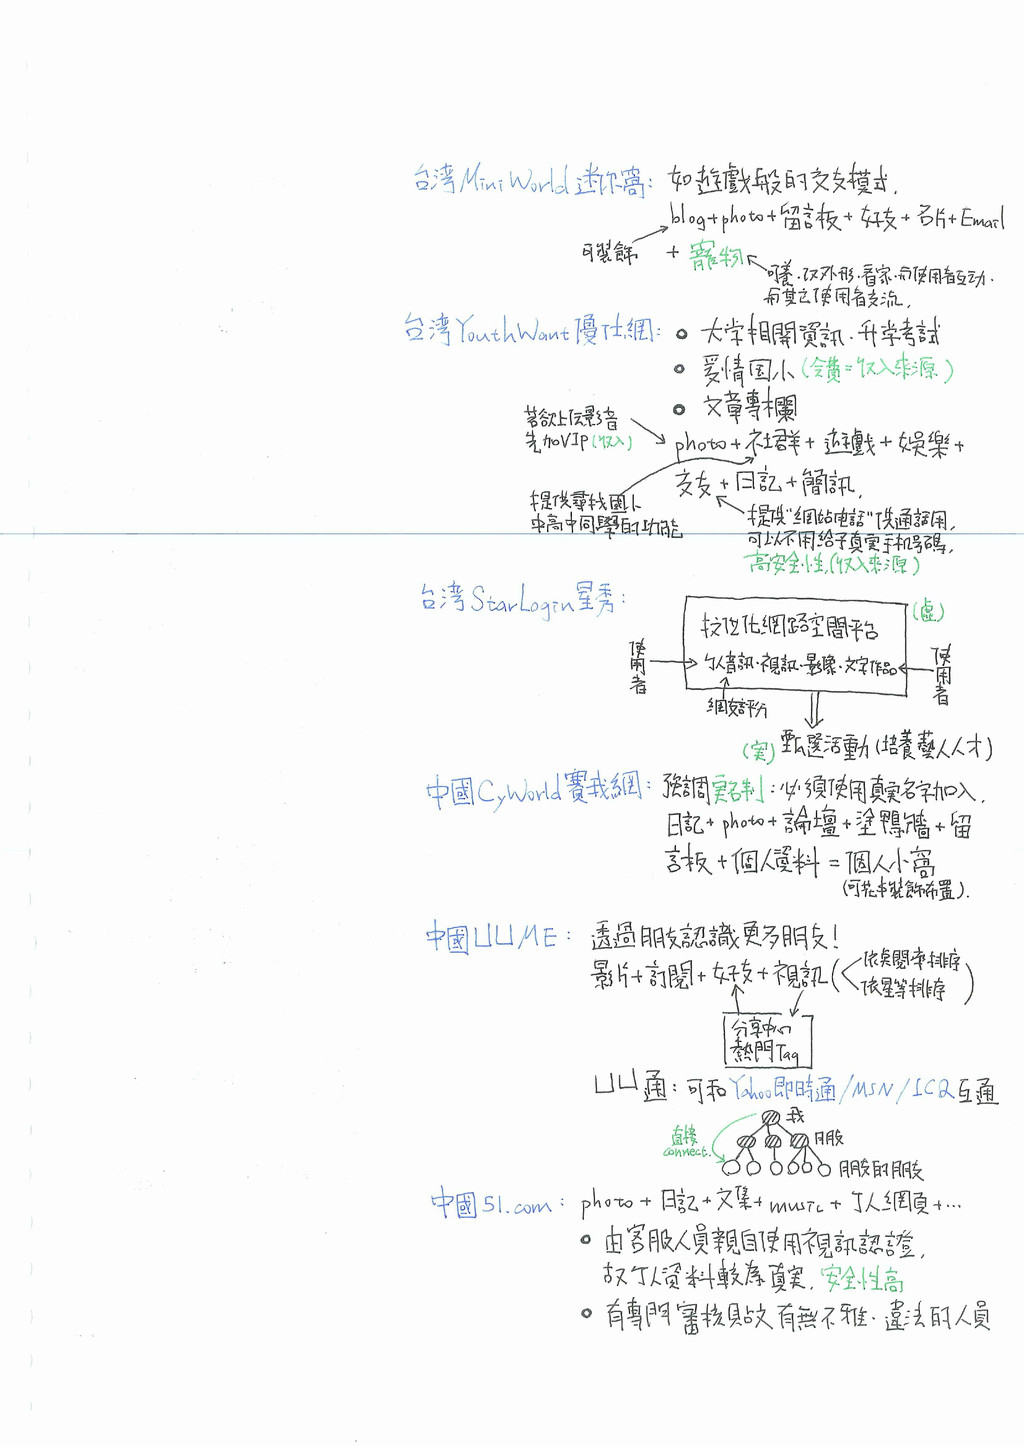 台湾MiniWorld迷你窩: 如遊戲般的交友模式.
blog+photo+留言板+好友+名片+Email
可裝飾
+ 寵物
可養·改外形·看家·和使用者互动.
和其它使用者交流.
台湾YouthWant優仕網: 大学相關資訊·升学考試
愛情国小(会費=收入來源)
文章專欄
若欲上伝影音
先加VIP(收入)
photo+社群+遊戲+娛樂+
交友+日記+簡訊.
提供尋找國小
中高中同學的功能
提供"網站電話"供通話用,
可以不用給予真実手机号碼,
高安全性,(收入來源)
台湾StarLogin星秀:
(虛)
個性化網路空間平台
使用者
个人資訊·視訊·影像·文字作品
使用者
網友評分
(実) 甄選活動(培養藝人人才)
中國CyWorld賽我網: 強調実名制:必須使用真実名字加入.
日記+photo+論壇+塗鴨牆+留
言板+個人資料=個人小窩
(可花本裝飾佈置).
中國UUME: 透過朋友認識更多朋友!
影片+訂閱+好友+視訊(
依点閱率排序
依星等排序
)
分享中心
熱門Tag
UU通:可和Yahoo即時通/MSN/ICQ互通
我
直接
connect.
朋友
朋友的朋友
中國51.com: photo+日記+文集+music+个人網頁+…
由客服人員親自使用視訊認證,
故个人資料較為真実. 安全性高
有專門審核貼文有無不雅·違法的人員